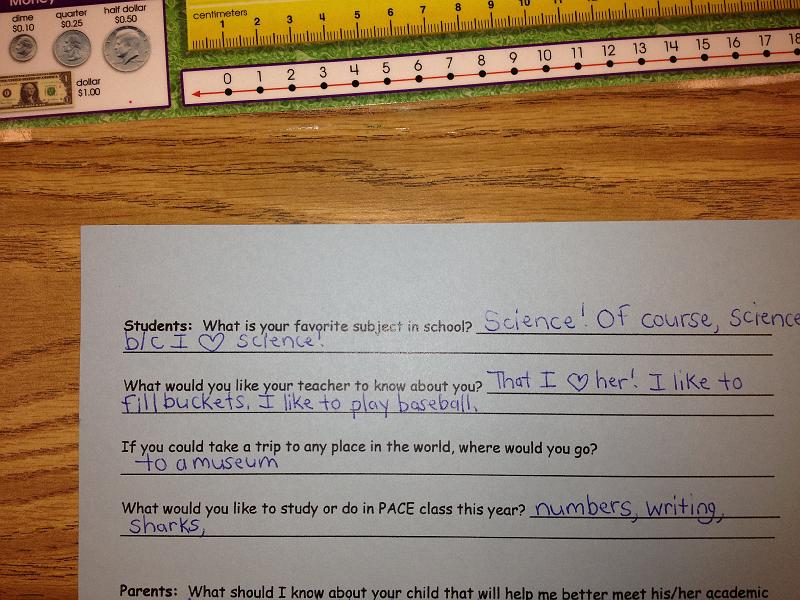 Money
dime quarter half dollar
$0.10 $0.25 $0.50
dollar
$1.00
centimeters
1 2 3 4 5 6 7 8 9 10 11 12 13 14 15
0 1 2 3 4 5 6 7 8 9 10 11 12 13 14 15 16 17 18
Students: What is your favorite subject in school? Science! Of course, science
b/c I ♡ science!
What would you like your teacher to know about you? That I ♡ her! I like to
fill buckets. I like to play baseball.
If you could take a trip to any place in the world, where would you go?
to a museum
What would you like to study or do in PACE class this year? numbers, writing,
sharks,
Parents: What should I know about your child that will help me better meet his/her academic